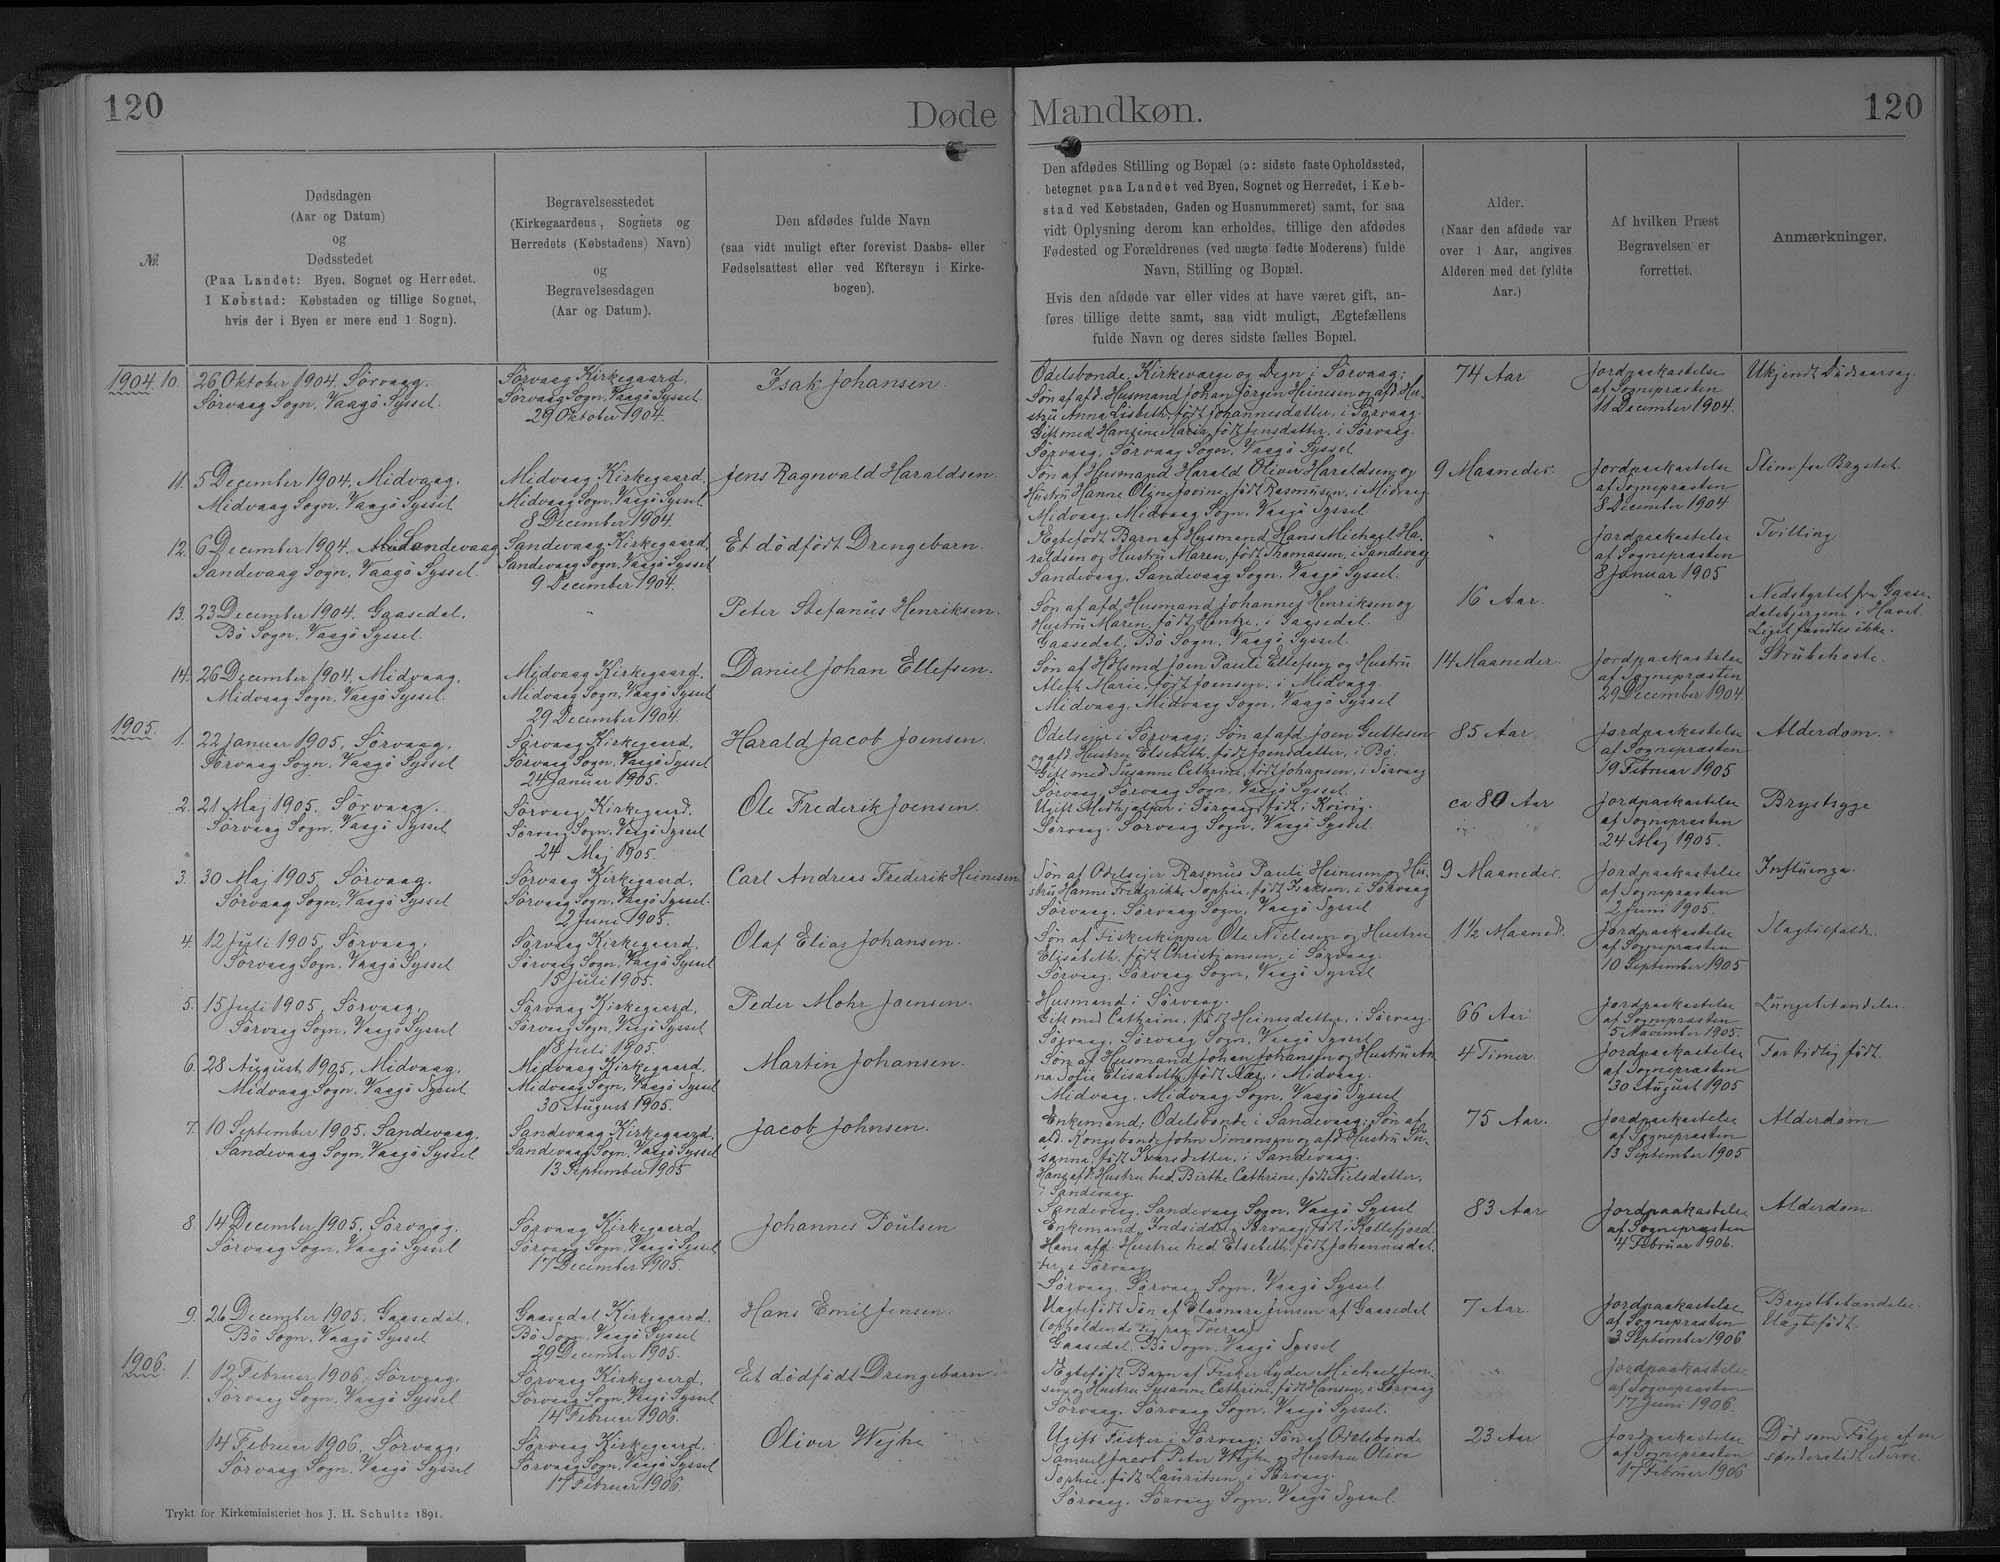 120
Døde
Mandkøn.
120
№.
Dødsdagen
(Aar og Datum)
og
Dødsstedet
(Paa Landet: Byen, Sognet og Herredet.
I Købstad: Købstaden og tillige Sognet,
hvis der i Byen er mere end 1 Sogn).
Begravelsesstedet
(Kirkegaardens, Sognets og
Herredets (Købstadens) Navn)
og
Begravelsesdagen
(Aar og Datum).
Den afdødes fulde Navn
(saa vidt muligt efter forevist Daabs- eller
Fødselsattest eller ved Eftersyn i Kirke-
bogen).
Den afdødes Stilling og Bopæl (ɔ: sidste faste Opholdssted,
betegnet paa Landet ved Byen, Sognet og Herredet, i Køb-
stad ved Købstaden, Gaden og Husnummeret) samt, for saa
vidt Oplysning derom kan erholdes, tillige den afdødes
Fødested og Forældrenes (ved uægte fødte Moderens) fulde
Navn, Stilling og Bopæl.
Hvis den afdøde var eller vides at have været gift, an-
føres tillige dette samt, saa vidt muligt, Ægtefællens
fulde Navn og deres sidste fælles Bopæl.
Alder.
(Naar den afdøde var
over 1 Aar, angives
Alderen med det fyldte
Aar.)
Af hvilken Præst
Begravelsen er
forrettet.
Anmærkninger.
1904. 10. 26 Oktober 1904. Sörvaag.
Sörvaag Sogn, Vaagö Syssel.
Sörvaag Kirkegaard.
Sörvaag Sogn, Vaagö Syssel
29 Oktober 1904.
Isak Johansen.
Odelsbonde, Kirkeværge og Degn i Sörvaag;
Sön af afd. Husmand Johan Jörgen Heinesen og afd. Hu-
stru Anna Lisbeth, födt Johannesdatter, i Sörvaag.
Gift med Hansine Maria, födt Jensdatter, i Sörvaag.
Sörvaag, Sörvaag Sogn, Vaagö Syssel
74 Aar
Jordpaakastelse
af Sognepræsten
11 December 1904.
Ukjendt Dödsaarsag.
11. 5 December 1904, Midvaag.
Midvaag Sogn, Vaagö Syssel
Midvaag Kirkegaard.
Midvaag Sogn, Vaagö Syssel
8 December 1904.
Jens Ragnvald Haraldsen.
Sön af Husmand Harald Oliver Haraldsen og
Hustru Hanne Olyne Jovine, födt Rasmusen, i Midvaag
Midvaag, Midvaag Sogn, Vaagö Syssel
9 Maaneder.
Jordpaakastelse
af Sognepræsten
8 December 1904
Slim fra Brystet.
12. 6 December 1904. Sandevaag
Sandevaag Sogn, Vaagö Syssel.
Sandevaag Kirkegaard.
Sandevaag Sogn, Vaagö Syssel
9 December 1904.
Et dödfödt Drengebarn.
Ægtefödt Barn af Husmand Hans Michael Ha-
raldsen og Hustru Maren, födt Thomassen, i Sandevaag
Sandevaag, Sandevaag Sogn, Vaagö Syssel.
"
Jordpaakastelse
af Sognepræsten
8 Januar 1905
Tvilling
13. 23 December 1904. Gaasedal.
Bö Sogn, Vaagö Syssel.
"
Peter Stefanus Henriksen.
Sön af afd. Husmand Johannes Henriksen og
Hustru Maren, födt Hentze, i Gaasedal.
Gaasedal, Bö Sogn, Vaagö Syssel
16 Aar.
"
Nedstyrtet fra Gaase-
dalsbjergene i Havet.
Liget fandtes ikke.
14. 26 December 1904, Midvaag.
Midvaag Sogn, Vaagö Syssel.
Midvaag Kirkegaard.
Midvaag Sogn, Vaagö Syssel
29 December 1904.
Daniel Johan Ellefsen.
Sön af Husmd Joen Pauli Ellefsen og Hustru
Aleth Marie, födt Joensen, i Midvaag
Midvaag, Midvaag Sogn, Vaagö Syssel
14 Maaneder.
Jordpaakastelse
af Sognepræsten
29 December 1904
Strubehoste.
1905. 1. 22 Januar 1905, Sörvaag.
Sörvaag Sogn, Vaagö Syssel
Sörvaag Kirkegaard,
Sörvaag Sogn, Vaagö Syssel
24 Januar 1905.
Harald Jacob Joensen.
Odelsejer i Sörvaag; Sön af afd. Joen Guttesen
og afd. Hustru Elsebeth, födt Joensdatter, i Bö.
Gift med Susanne Cathrine, födt Johansen, i Sörvaag
Sörvaag, Sörvaag Sogn, Vaagö Syssel.
85 Aar
Jordpaakastelse
af Sognepræsten
19 Februar 1905
Alderdom.
2. 21 Maj 1905. Sörvaag.
Sörvaag Sogn, Vaagö Syssel
Sörvaag Kirkegaard.
Sörvaag Sogn, Vaagö Syssel
24 Maj 1905.
Ole Frederik Joensen.
Ugift Medhjælper i Sörvaag, födt i Kvivig.
Sörvaag, Sörvaag Sogn, Vaagö Syssel.
ca 80 Aar
Jordpaakastelse
af Sognepræsten
24 Maj 1905.
Brystsyge
3. 30 Maj 1905. Sörvaag.
Sörvaag Sogn, Vaagö Syssel
Sörvaag Kirkegaard.
Sörvaag Sogn, Vaagö Syssel.
2 Juni 1905.
Carl Andreas Frederik Heinesen
Sön af Odelsejer Rasmus Pauli Heinesen og Hu-
stru Hanne Frederikke Sophie, födt Isaksen, i Sörvaag
Sörvaag, Sörvaag Sogn, Vaagö Syssel
9 Maaneder.
Jordpaakastelse
af Sognepræsten
2 Juni 1905.
Influenza.
4. 12 Juli 1905, Sörvaag.
Sörvaag Sogn, Vaagö Syssel
Sörvaag Kirkegaard.
Sörvaag Sogn, Vaagö Syssel
15 Juli 1905.
Olaf Elias Johansen.
Sön af Fiskeskipper Ole Nielesen og Hustru
Elisabeth, födt Christiansen, i Sörvaag.
Sörvaag, Sörvaag Sogn, Vaagö Syssel
1½ Maaned.
Jordpaakastelse
af Sognepræsten
10 September 1905
Slagtilfælde.
5. 15 Juli 1905, Sörvaag,
Sörvaag Sogn, Vaagö Syssel
Sörvaag Kirkegaard,
Sörvaag Sogn, Vaagö Syssel
18 Juli 1905.
Peder Mohr Joensen.
Husmand i Sörvaag.
Gift med Cathrine, födt Heinesdatter, i Sörvaag.
Sörvaag, Sörvaag Sogn, Vaagö Syssel
66 Aar
Jordpaakastelse
af Sognepræsten
5 November 1905.
Lungebetændelse.
6. 28 August 1905, Midvaag.
Midvaag Sogn, Vaagö Syssel
Midvaag Kirkegaard.
Midvaag Sogn, Vaagö Syssel
30 August 1905.
Martin Johansen.
Sön af Husmand Johan Johansen og Hustru An-
na Sofia Elisabeth, födt Næs, i Midvaag.
Midvaag, Midvaag Sogn, Vaagö Syssel
4 Timer
Jordpaakastelse
af Sognepræsten
30 August 1905
For tidlig födt.
7. 10 September 1905. Sandevaag.
Sandevaag Sogn, Vaagö Syssel
Sandevaag Kirkegaard.
Sandevaag Sogn, Vaagö Syssel
13 September 1905
Jacob Johnsen.
Enkemand; Odelsbonde i Sandevaag; Sön af
afd. Kongsbonde John Simonsen og afd. Hustru Su-
sanna, födt Ivarsdatter, i Sandevaag.
Hans afd. Hustru hed Birthe Cathrine, födt Nielsdatter,
i Sandevaag
Sandevaag, Sandevaag Sogn, Vaagö Syssel
75 Aar.
Jordpaakastelse
af Sognepræsten
13 September 1905
Alderdom
8. 14 December 1905, Sörvaag.
Sörvaag Sogn, Vaagö Syssel
Sörvaag Kirkegaard
Sörvaag Sogn, Vaagö Syssel
17 December 1905.
Johannes Poulsen
Enkemand, Indsidder i Sörvaag, födt i Kollefjord
Hans afd. Hustru hed Elsebeth, födt Johannesdat-
ter, i Sörvaag
Sörvaag, Sörvaag Sogn, Vaagö Syssel
83 Aar
Jordpaakastelse
af Sognepræsten
4 Februar 1906.
Alderdom.
9. 26 December 1905. Gaasedal.
Bö Sogn, Vaagö Syssel
Gaasedal Kirkegaard.
Bö Sogn, Vaagö Syssel
29 December 1905.
Hans Emil Jensen.
Uægtefödt Sön af Elaonara Jensen af Gaasedal
(opholdende sig paa Tveraa)
Gaasedal, Bö Sogn, Vaagö Syssel
7 Aar
Jordpaakastelse
af Sognepræsten
3 September 1906
Brystbetændelse.
Uægtefödt.
1906. 1. 12 Februar 1906. Sörvaag.
Sörvaag Sogn, Vaagö Syssel
Sörvaag Kirkegaard,
Sörvaag Sogn, Vaagö Syssel
14 Februar 1906.
Et dödfödt Drengebarn
Ægtefödt Barn af Fisker Lyder Michael Jen-
sen og Hustru Susanne Cathrine, födt Hansen, i Sörvaag
Sörvaag, Sörvaag Sogn, Vaagö Syssel.
"
Jordpaakastelse
af Sognepræsten
17 Juni 1906.
14 Februar 1906, Sörvaag,
Sörvaag Sogn, Vaagö Syssel
Sörvaag Kirkegaard.
Sörvaag Sogn, Vaagö Syssel
17 Februar 1906.
Oliver Wejhe
Ugift Fisker i Sörvaag; Sön af Odelsbonde
Samuel Jacob Peter Wejhe og Hustru Oliva
Sophie, födt Lauritsen, i Sörvaag.
Sörvaag, Sörvaag Sogn, Vaagö Syssel.
23 Aar
Jordpaakastelse
af Sognepræsten
17 Februar 1906
Död som Fölge af en
sönderslidt Nerve.
Trykt for Kirkeministeriet hos J. H. Schultz 1891.